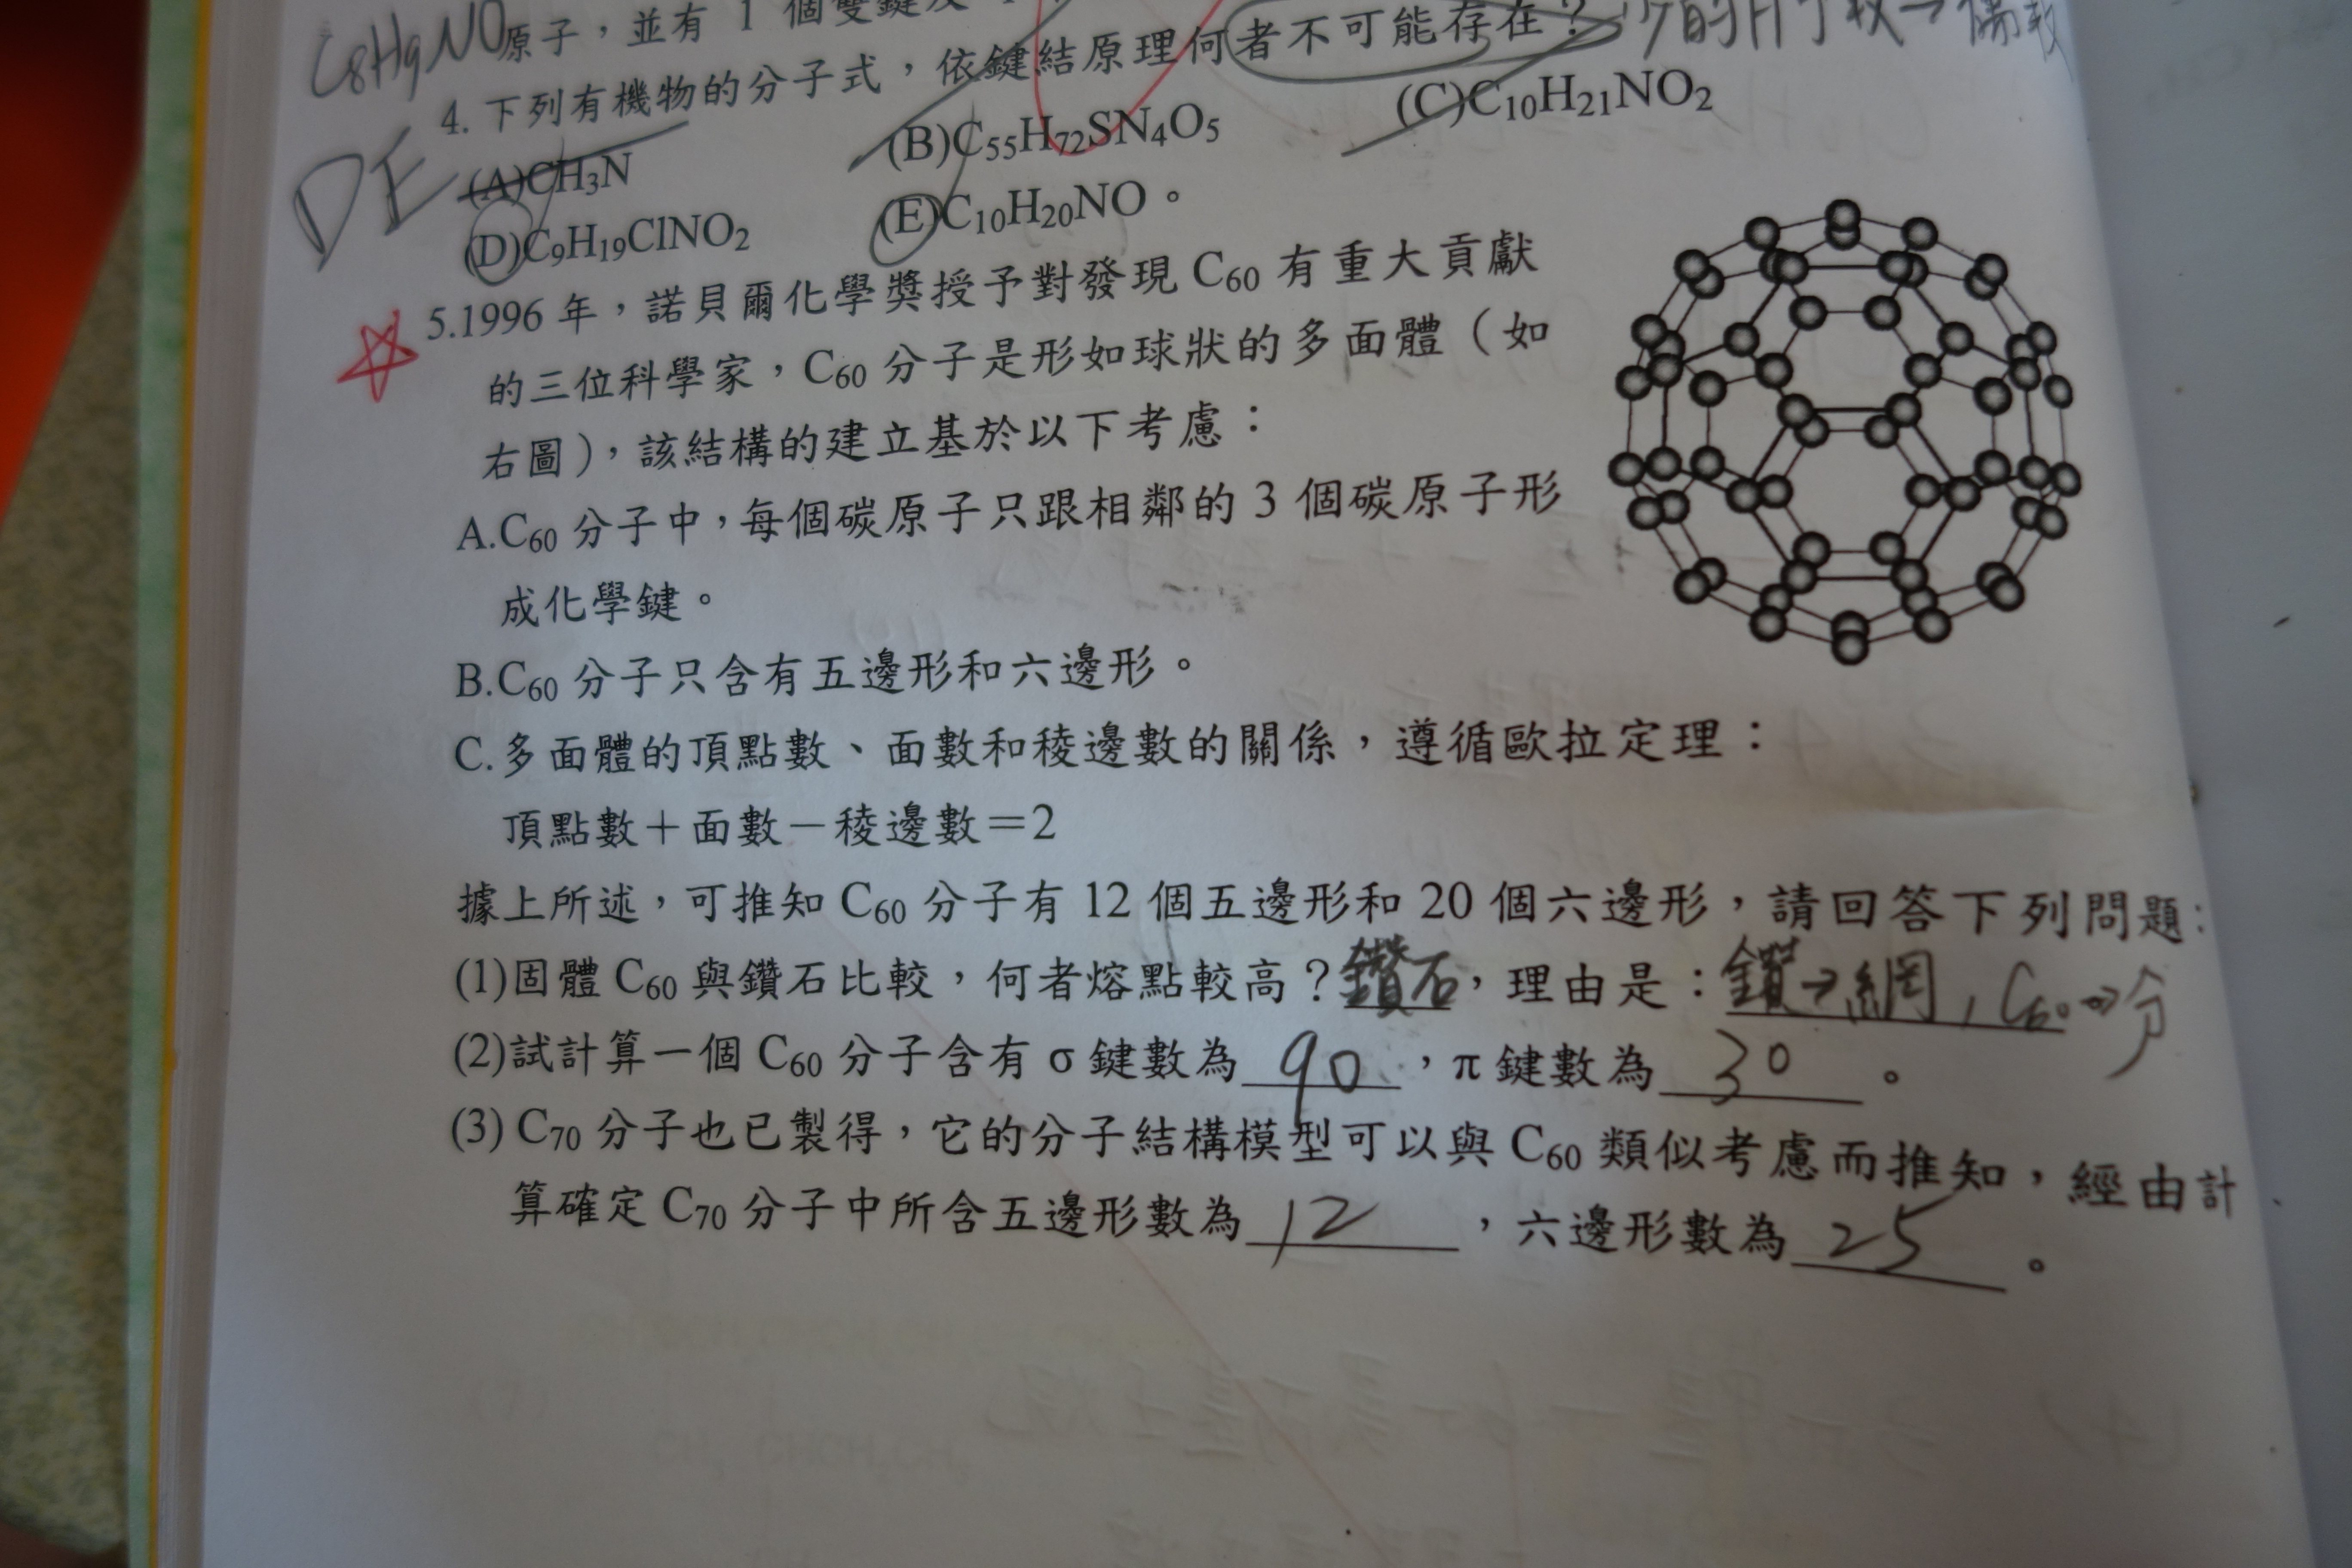 C8H9NO原子，並有 1 個雙鍵及
4. 下列有機物的分子式，依鍵結原理何者不可能存在？ 的H子數→偶數
DE (A)CH3N (B)C55H72SN4O5 (C)C10H21NO2
(D)C9H19ClNO2 (E)C10H20NO。
5.1996 年，諾貝爾化學獎授予對發現 C60 有重大貢獻
的三位科學家，C60 分子是形如球狀的多面體（如
右圖），該結構的建立基於以下考慮：
A.C60 分子中，每個碳原子只跟相鄰的 3 個碳原子形
成化學鍵。
B.C60 分子只含有五邊形和六邊形。
C.多面體的頂點數、面數和稜邊數的關係，遵循歐拉定理：
頂點數＋面數－稜邊數＝2
據上所述，可推知 C60 分子有 12 個五邊形和 20 個六邊形，請回答下列問題：
(1)固體 C60 與鑽石比較，何者熔點較高？鑽石，理由是：鑽→網，C60→分
(2)試計算一個 C60 分子含有 σ 鍵數為 90 ，π 鍵數為 30 。
(3) C70 分子也已製得，它的分子結構模型可以與 C60 類似考慮而推知，經由計
算確定 C70 分子中所含五邊形數為 12 ，六邊形數為 25 。